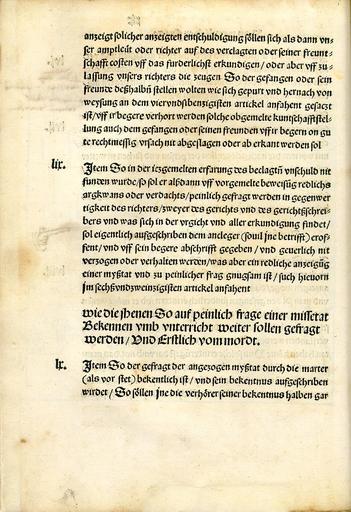 anzeigt solicher anzeigten entschuldigung söllen sich als dann vn-
ser amptleüt oder richter auf des verclagten oder seiner freunt-
schafft costen vff das fürderlichst erkundigen / oder aber vff zu-
lassung vnsers richters die zeugen So der gefangen oder sein
freunde deßhalbñ stellen wolten wie sich gepurt vnd hernach von
weysung an dem viervndsibenzigisten artickel anfahent gesatzt
ist / vff ir begere verhort werden solche obgemelte kuntschafftstel-
lung auch dem gefangen oder seinen freunden vff ir begern on gu
te rechtmessig vrsach nit abgeslagen oder ab erkant werden sol
lix. Jtem So in der ietzgemelten erfarung des beclagtñ vnschuld nit
funden wurde / so sol er alßdann vff vorgemelte beweisüg redlichs
argkwans oder verdachts / peinlich gefragt werden in gegenwer
tigkeit des richters / zweyer des gerichts vnd des gerichtßschrei-
bers vnd was sich in der vrgicht vnd aller erkundigung findet /
sol eigentlich aufgeschriben dem ancleger (souil jne betrifft) erof-
fent / vnd vff sein begere abschrifft gegeben / vnd geuerlich nit
verzogen oder verhalten werden / was aber ein redliche anzeigüg
einer myßtat vnd zu peinlicher frag gnugsam ist / such hieuorn
jm sechßvndzweinzigisten artickel anfahent
wie die jhenen So auf peinlich frage einer missetat
Bekennen vmb vnterricht weiter sollen gefragt
werden / Vnd Erstlich vom mordt.
lx. Jtem So der gefragt der angezogen myßtat durch die marter
(als vor stet) bekentlich ist / vnd sein bekentnus aufgeschriben
wirdet / So söllen jne die verhörer seiner bekentnus halben gar